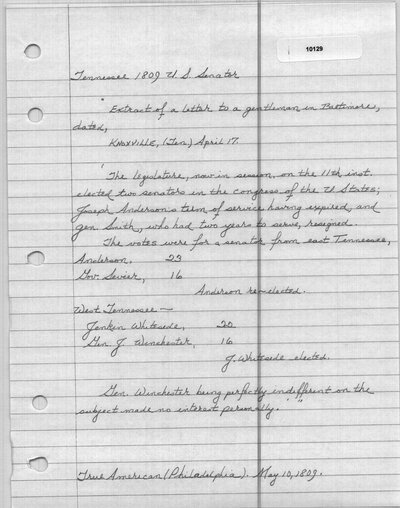 10129
Tennessee 1809 U S Senator
"Extract of a letter to a gentleman in Baltimore,
dated,
KNOXVILLE, (Ten.) April 17.
'The legislature, now in session, on the 11th inst.
elected two senators in the congress of the U States;
Joseph Anderson's term of service having expired, and
gen. Smith, who had two years to serve, resigned.
The votes were for a senator from east Tennessee,
Anderson, 23
Gov. Sevier, 16
Anderson re-elected.
West Tennessee —
Jenkin Whiteside, 20
Gen. J. Winchester, 16
J. Whiteside elected.
Gen. Winchester being perfectly indifferent on the
subject made no interest personally.' "
True American (Philadelphia). May 10, 1809.